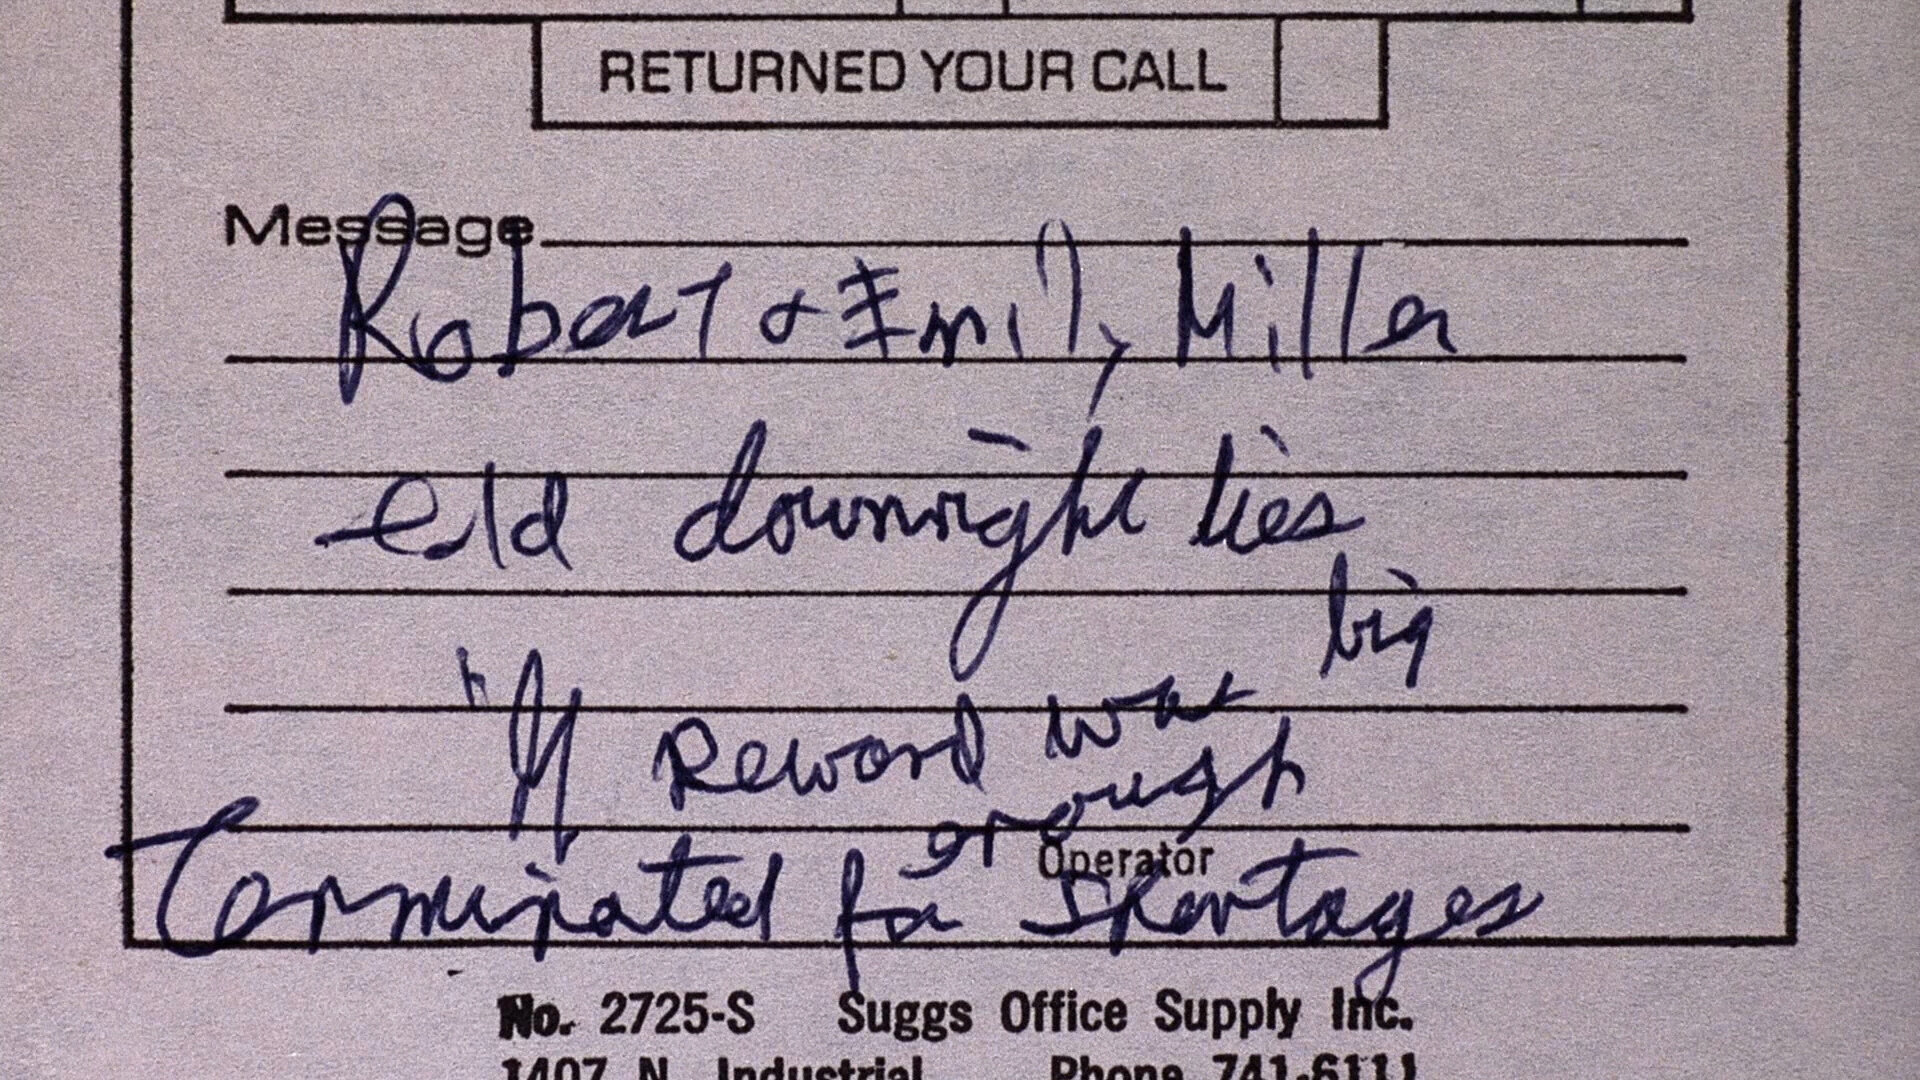 RETURNED YOUR CALL
Message
Robert & Emily Miller
told downright lies
"If Reward was big
enough
Operator
Terminated for Shortages
No. 2725-S Suggs Office Supply Inc.
1407 N. Industrial Phone 741-6111